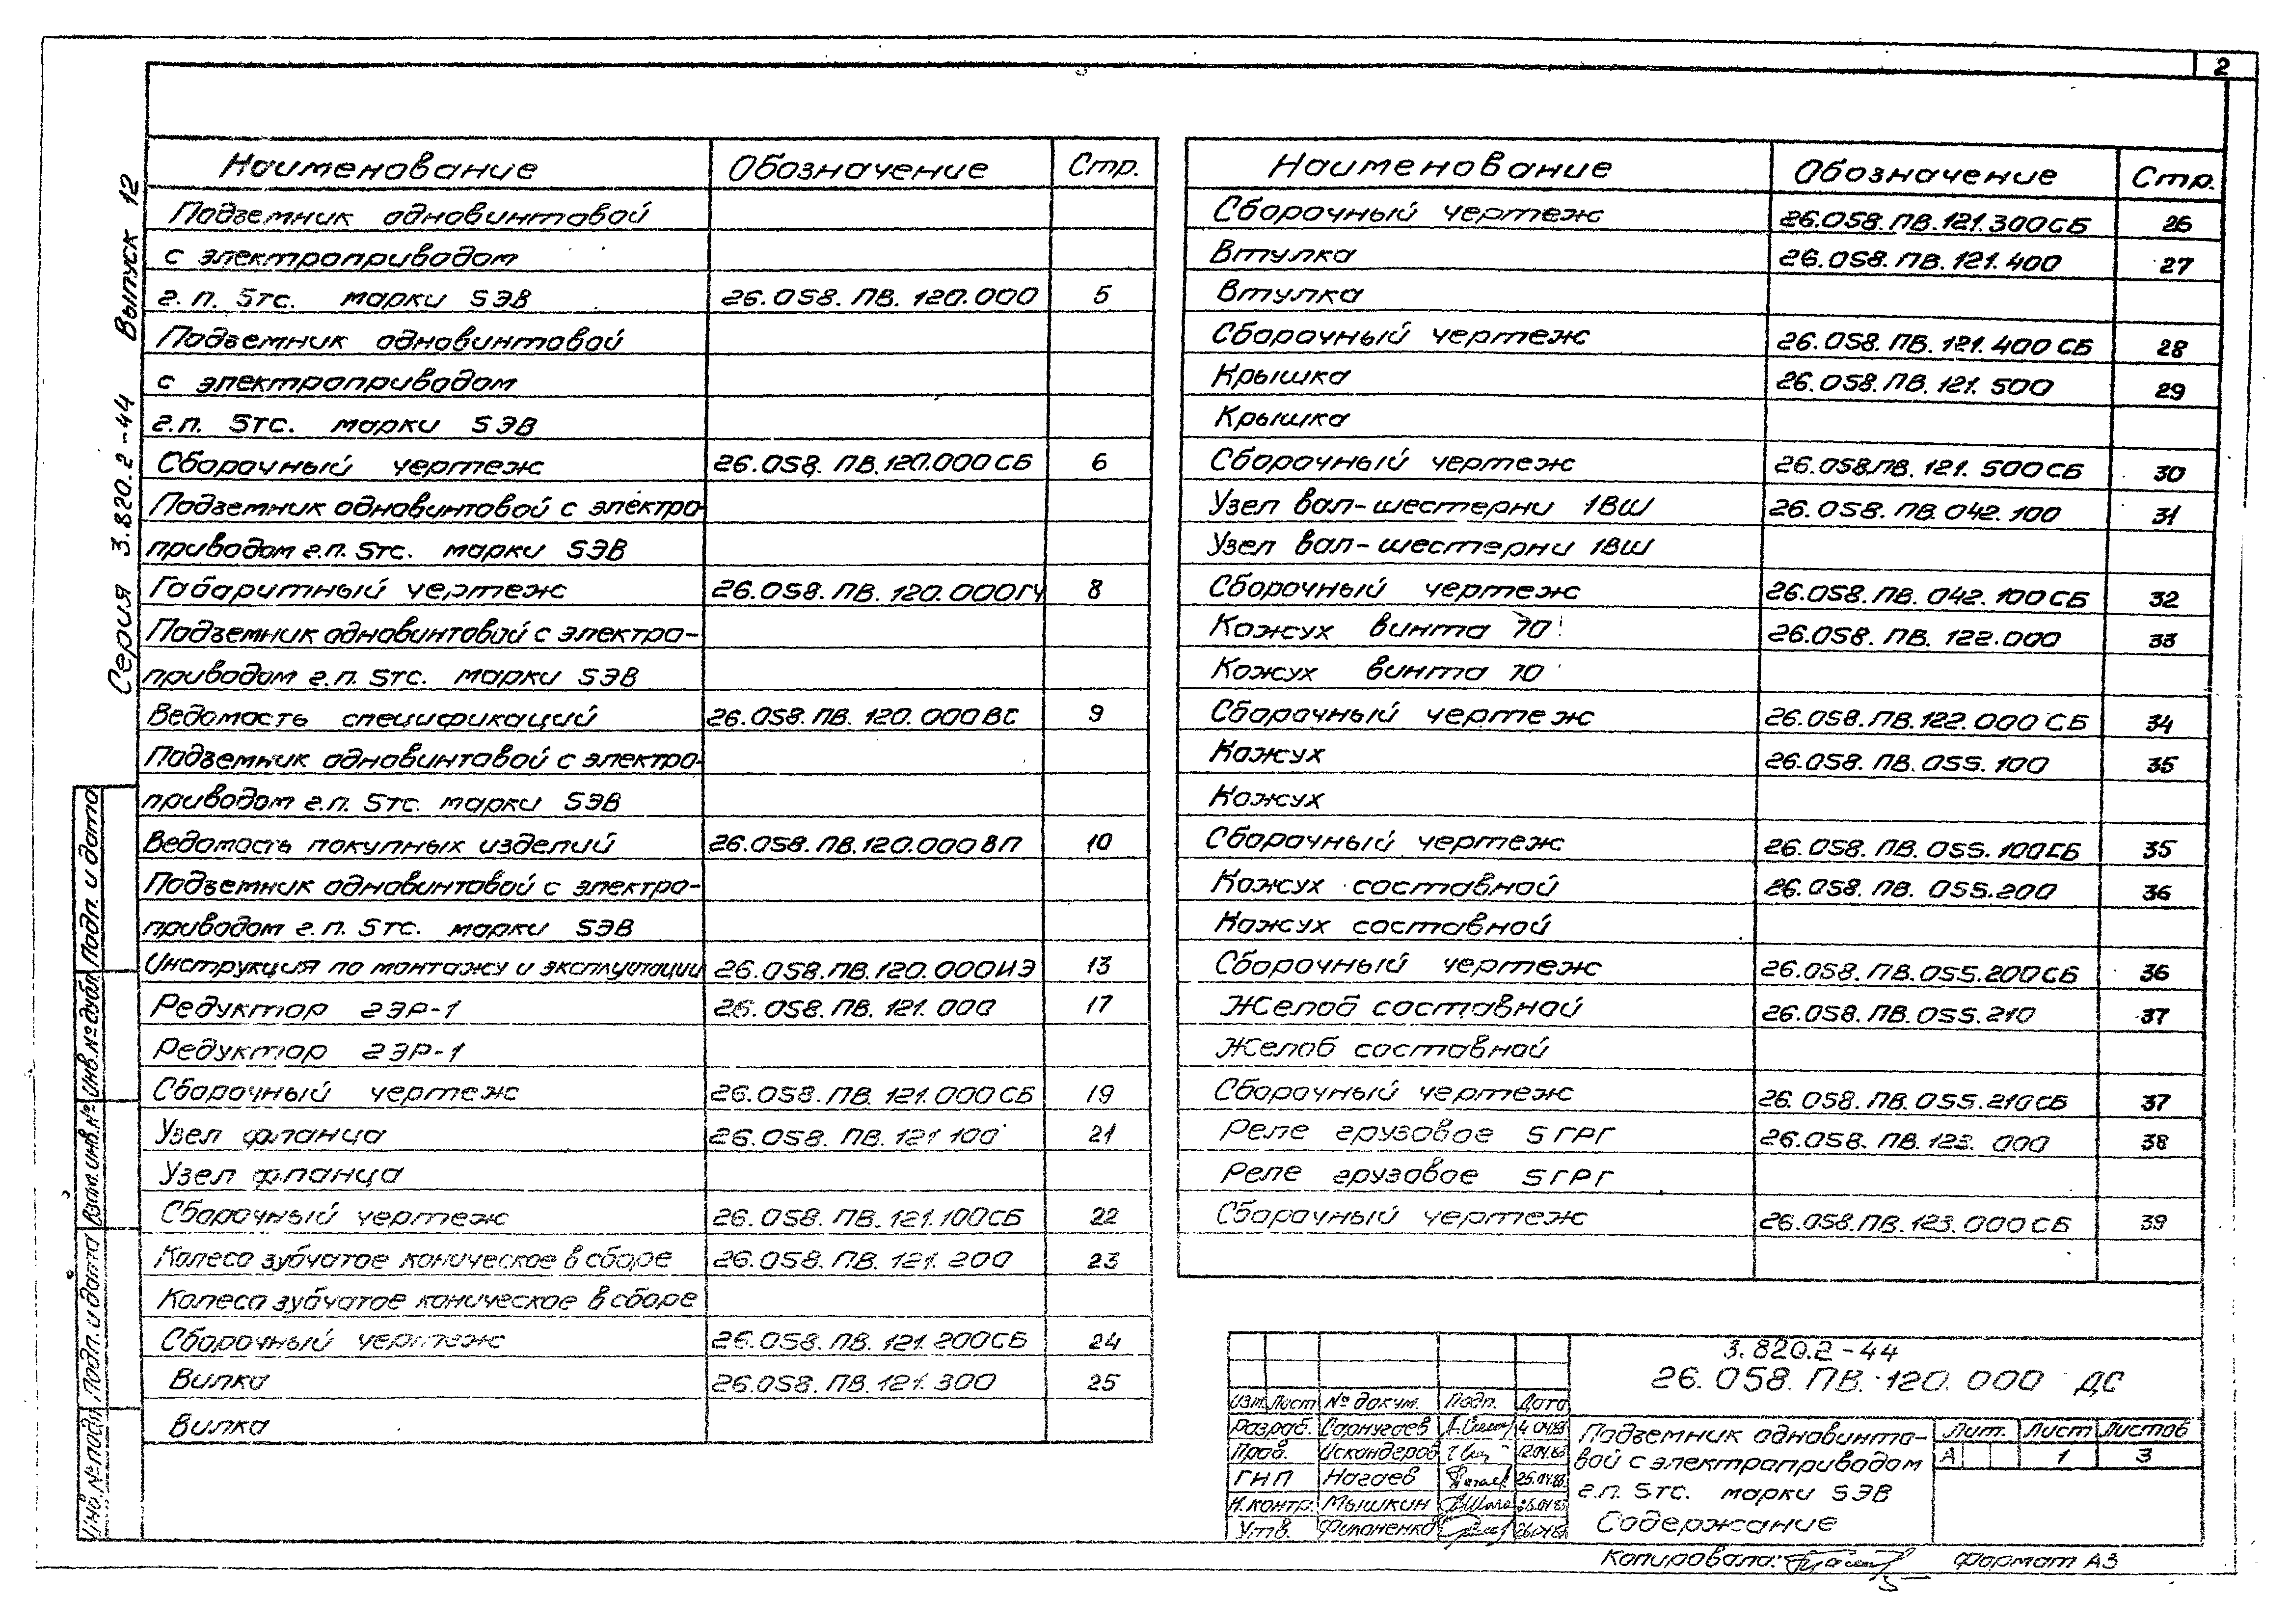 2
Серия 3.820.2-44 Выпуск 12
Наименование Обозначение Стр.
Подъемник одновинтовой
с электроприводом
г.п. 5тс. марки 5ЭВ 26.058.ПВ.120.000 5
Подъемник одновинтовой
с электроприводом
г.п. 5тс. марки 5ЭВ
Сборочный чертеж 26.058.ПВ.120.000СБ 6
Подъемник одновинтовой с электро-
приводом г.п. 5тс. марки 5ЭВ
Габаритный чертеж 26.058.ПВ.120.000ГЧ 8
Подъемник одновинтовой с электро-
приводом г.п. 5тс. марки 5ЭВ
Ведомость спецификаций 26.058.ПВ.120.000ВС 9
Подъемник одновинтовой с электро-
приводом г.п. 5тс. марки 5ЭВ
Ведомость покупных изделий 26.058.ПВ.120.000ВП 10
Подъемник одновинтовой с электро-
приводом г.п. 5тс. марки 5ЭВ
Инструкция по монтажу и эксплуатации 26.058.ПВ.120.000ИЭ 13
Редуктор 2ЭР-1 26.058.ПВ.121.000 17
Редуктор 2ЭР-1
Сборочный чертеж 26.058.ПВ.121.000СБ 19
Узел фланца 26.058.ПВ.121.100 21
Узел фланца
Сборочный чертеж 26.058.ПВ.121.100СБ 22
Колесо зубчатое коническое в сборе 26.058.ПВ.121.200 23
Колесо зубчатое коническое в сборе
Сборочный чертеж 26.058.ПВ.121.200СБ 24
Вилка 26.058.ПВ.121.300 25
Вилка
Наименование Обозначение Стр.
Сборочный чертеж 26.058.ПВ.121.300СБ 26
Втулка 26.058.ПВ.121.400 27
Втулка
Сборочный чертеж 26.058.ПВ.121.400СБ 28
Крышка 26.058.ПВ.121.500 29
Крышка
Сборочный чертеж 26.058.ПВ.121.500СБ 30
Узел вал-шестерни 1ВШ 26.058.ПВ.042.100 31
Узел вал-шестерни 1ВШ
Сборочный чертеж 26.058.ПВ.042.100СБ 32
Кожух винта 70 26.058.ПВ.122.000 33
Кожух винта 70
Сборочный чертеж 26.058.ПВ.122.000СБ 34
Кожух 26.058.ПВ.055.100 35
Кожух
Сборочный чертеж 26.058.ПВ.055.100СБ 35
Кожух составной 26.058.ПВ.055.200 36
Кожух составной
Сборочный чертеж 26.058.ПВ.055.200СБ 36
Желоб составной 26.058.ПВ.055.210 37
Желоб составной
Сборочный чертеж 26.058.ПВ.055.210СБ 37
Реле грузовое 5ГРГ 26.058.ПВ.123.000 38
Реле грузовое 5ГРГ
Сборочный чертеж 26.058.ПВ.123.000СБ 39
Инв.№подл. Подп. и дата Взам.инв.№ Инв.№дубл. Подп. и дата
3.820.2-44
26.058.ПВ.120.000 ДС
Изм. Лист № докум. Подп. Дата
Разраб.
Пров. Искандеров
ГИП Нагаев
Н.контр. Мышкин
Утв. Филоненко
Подъемник одновинто-
вой с электроприводом
г.п. 5тс. марки 5ЭВ
Содержание
Лит. Лист Листов
А 1 3
Копировала: Формат А3